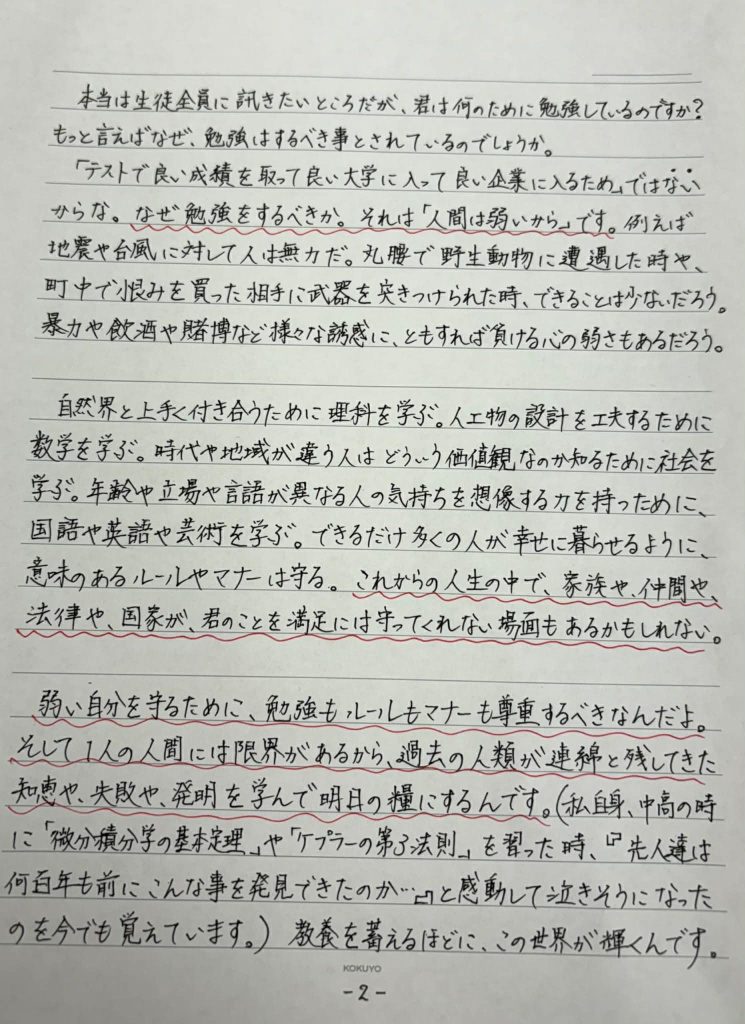 本当は生徒全員に訊きたいところだが、君は何のために勉強しているのですか?
もっと言えばなぜ、勉強はするべき事とされているのでしょうか。
「テストで良い成績を取って良い大学に入って良い企業に入るため」ではない
からな。なぜ勉強をするべきか。それは「人間は弱いから」です。例えば
地震や台風に対して人は無力だ。丸腰で野生動物に遭遇した時や、
町中で恨みを買った相手に武器を突きつけられた時、できることは少ないだろう。
暴力や飲酒や賭博など様々な誘惑に、ともすれば負ける心の弱さもあるだろう。
自然界と上手く付き合うために理科を学ぶ。人工物の設計を工夫するために
数学を学ぶ。時代や地域が違う人はどういう価値観なのか知るために社会を
学ぶ。年齢や立場や言語が異なる人の気持ちを想像する力を持つために、
国語や英語や芸術を学ぶ。できるだけ多くの人が幸せに暮らせるように、
意味のあるルールやマナーは守る。これからの人生の中で、家族や、仲間や、
法律や、国家が、君のことを満足には守ってくれない場面もあるかもしれない。
弱い自分を守るために、勉強もルールもマナーも尊重するべきなんだよ。
そして1人の人間には限界があるから、過去の人類が連綿と残してきた
知恵や、失敗や、発明を学んで明日の糧にするんです。(私自身、中高の時
に「微分積分学の基本定理」や「ケプラーの第3法則」を習った時、『先人達は
何百年も前にこんな事を発見できたのか…』と感動して泣きそうになった
のを今でも覚えています。) 教養を蓄えるほどに、この世界が輝くんです。
KOKUYO
-2-